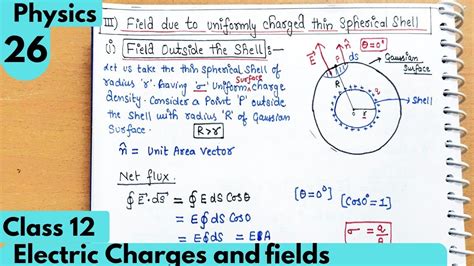 Physics
26
III) Field due to uniformly charged thin Spherical Shell
(i) Field Outside the Shell:-
Let us take the thin spherical shell of
radius 'r' having 'σ' uniform surface charge
density. Consider a Point 'P' outside
the Shell with radius 'R' of Gaussian
Surface.
R>r
n̂ = Unit Area Vector
Net flux.
∮ E⃗·ds⃗ = ∮ E ds Cosθ
= E ∮ ds Cosθ
= E ∮ ds = E
[θ=0°] [Cos0°=1]
σ = q/A
E⃗
n̂
P
ds
θ=0°
Gaussian
Surface
R
r
Shell
Class 12
Electric Charges and fields